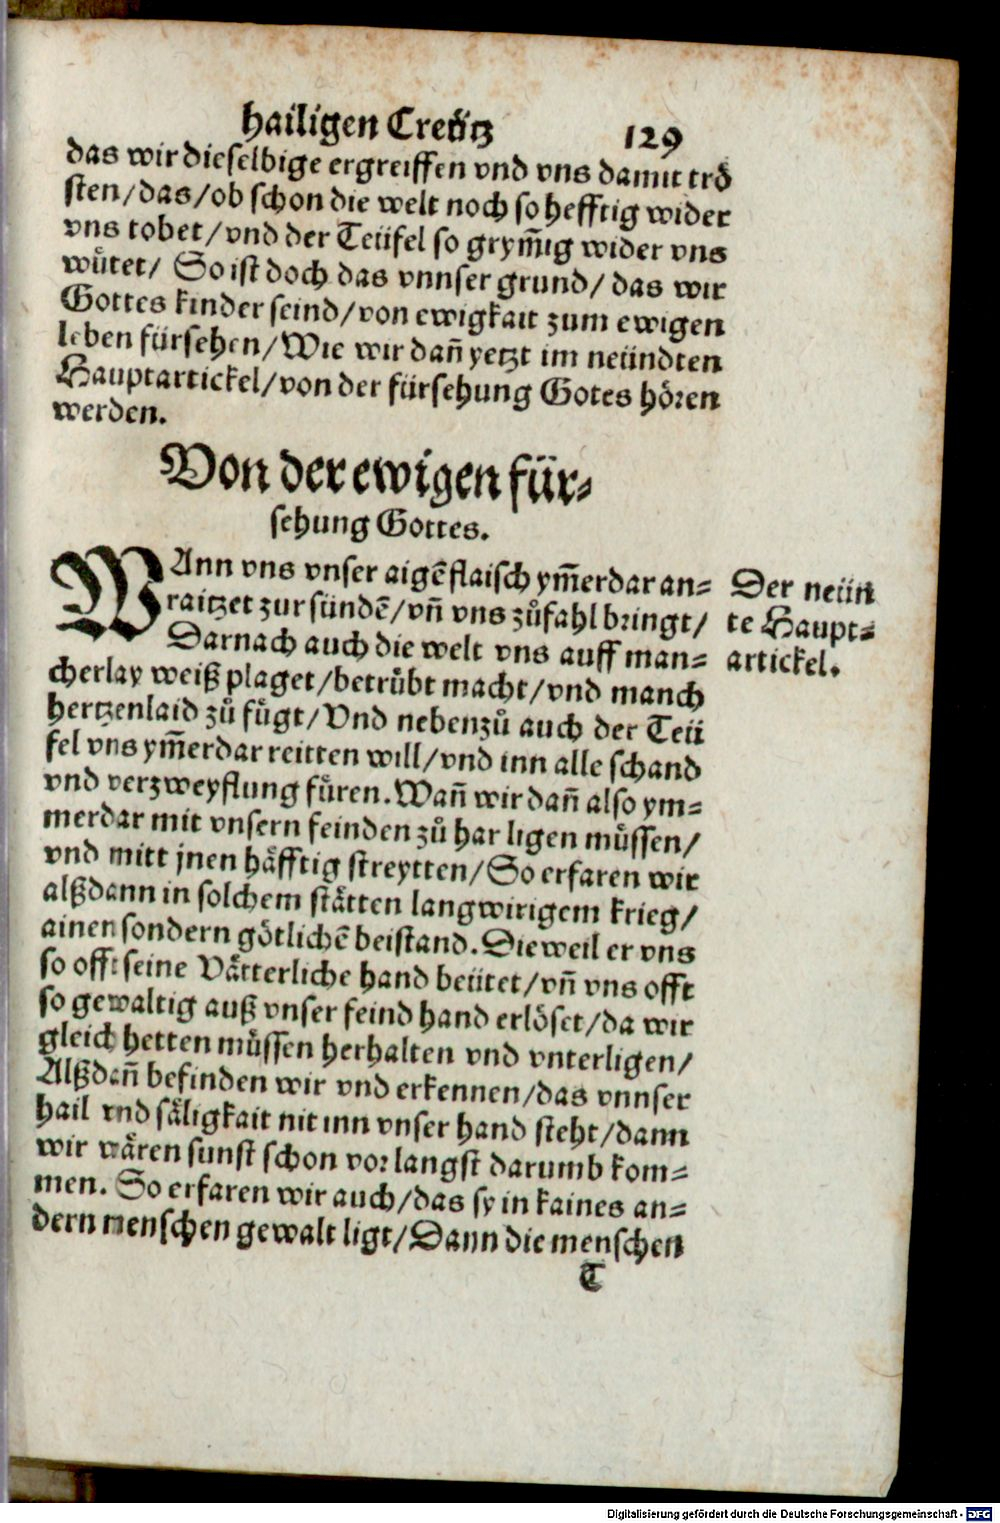 hailigen Creütz 129
das wir dieselbige ergreiffen vnd vns damit trö
sten/das/ob schon die welt noch so hefftig wider
vns tobet/vnd der Teüfel so grym̃ig wider vns
wůtet/ So ist doch das vnnser grund/ das wir
Gottes kinder seind/von ewigkait zum ewigen
leben fürsehen/Wie wir dañ yetzt im neündten
Hauptartickel/von der fürsehung Gotes hören
werden.
Von der ewigen für⸗
sehung Gottes.
WAnn vns vnser aigẽ flaisch ym̃erdar an⸗
raitzet zur sündẽ/vñ vns zůfahl bringt/
Darnach auch die welt vns auff man⸗
cherlay weiß plaget/betrůbt macht/vnd manch
hertzenlaid zů fůgt/Vnd nebenzů auch der Teü
fel vns ym̃erdar reitten will/vnd inn alle schand
vnd verzweyflung fůren.Wañ wir dañ also ym⸗
merdar mit vnsern feinden zů har ligen můssen/
vnd mitt jnen häfftig streytten/So erfaren wir
alßdann in solchem stätten langwirigem krieg/
ainen sondern götlichẽ beistand.Die weil er vns
so offt seine Vätterliche hand beütet/vñ vns offt
so gewaltig auß vnser feind hand erlöset/da wir
gleich hetten můssen herhalten vnd vnterligen/
Alßdañ befinden wir vnd erkennen/das vnnser
hail vnd säligkait nit inn vnser hand steht/dann
wir wären sunst schon vor langst darumb kom⸗
men. So erfaren wir auch/das sy in kaines an⸗
dern menschen gewalt ligt/Dann die menschen
T
Der neün
te Haupt⸗
artickel.
Digitalisierung gefördert durch die Deutsche Forschungsgemeinschaft - DFG